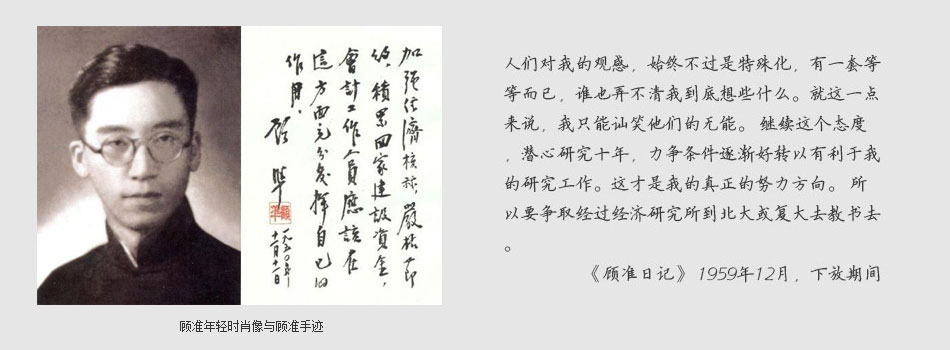 加强经濟核祘，嚴格节
约，積累国家建設資金，
會計工作人員應該在
這方面充分發揮自己的
作用。顾準
一九五〇年
顾准年轻时肖像与顾准手迹
人们对我的观感，始终不过是特殊化，有一套等
等而已，谁也弄不清我到底想些什么。就这一点
来说，我只能讪笑他们的无能。 继续这个态度
，潜心研究十年，力争条件逐渐好转以有利于我
的研究工作。这才是我的真正的努力方向。 所
以要争取经过经济研究所到北大或复大去教书去
。
《顾准日记》 1959年12月，下放期间